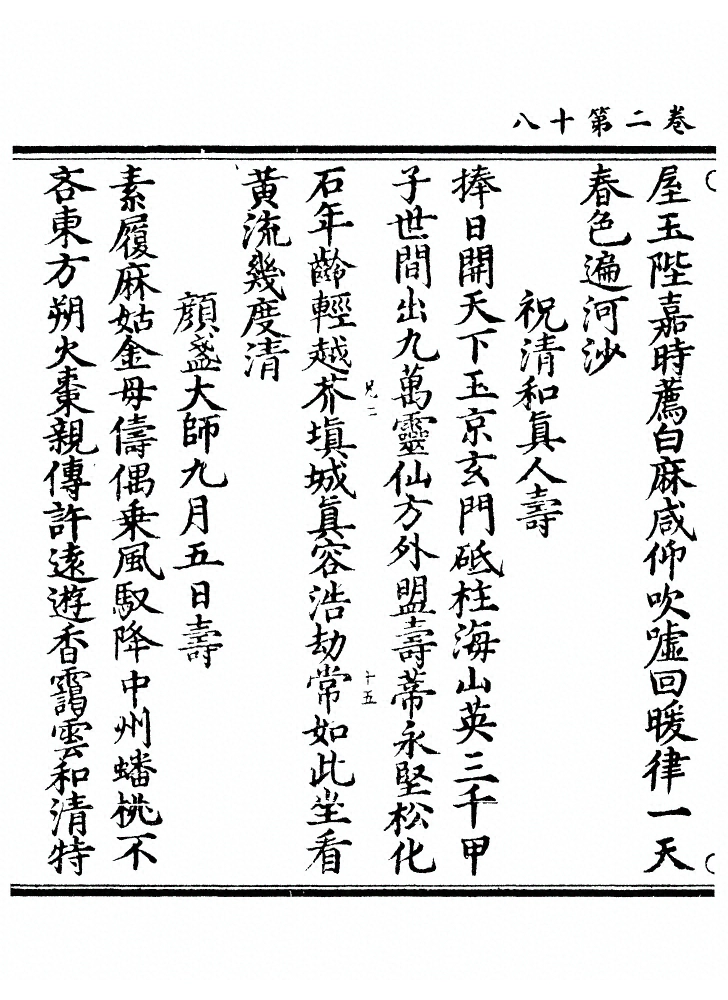 卷二第十八
屋玉陛嘉時薦白麻咸仰吹噓回暖律一天
春色遍河沙
祝清和眞人壽
捧日開天下玉京玄門砥柱海山英三千甲
子世間出九萬靈仙方外盟壽蒂永堅松化
石年齡輕越芥塡城眞容浩劫常如此坐看
兄二
十五
黃流幾度清
顔盞大師九月五日壽
素履麻姑金母儔偶乗風馭降中州蟠桃不
吝東方朔火棗親傳許遠遊香靄雲和清特